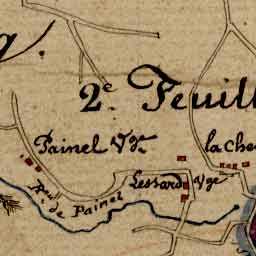 2e Feuill
Painel Vge
la Che
Lessard Vge
Rau
de Painel